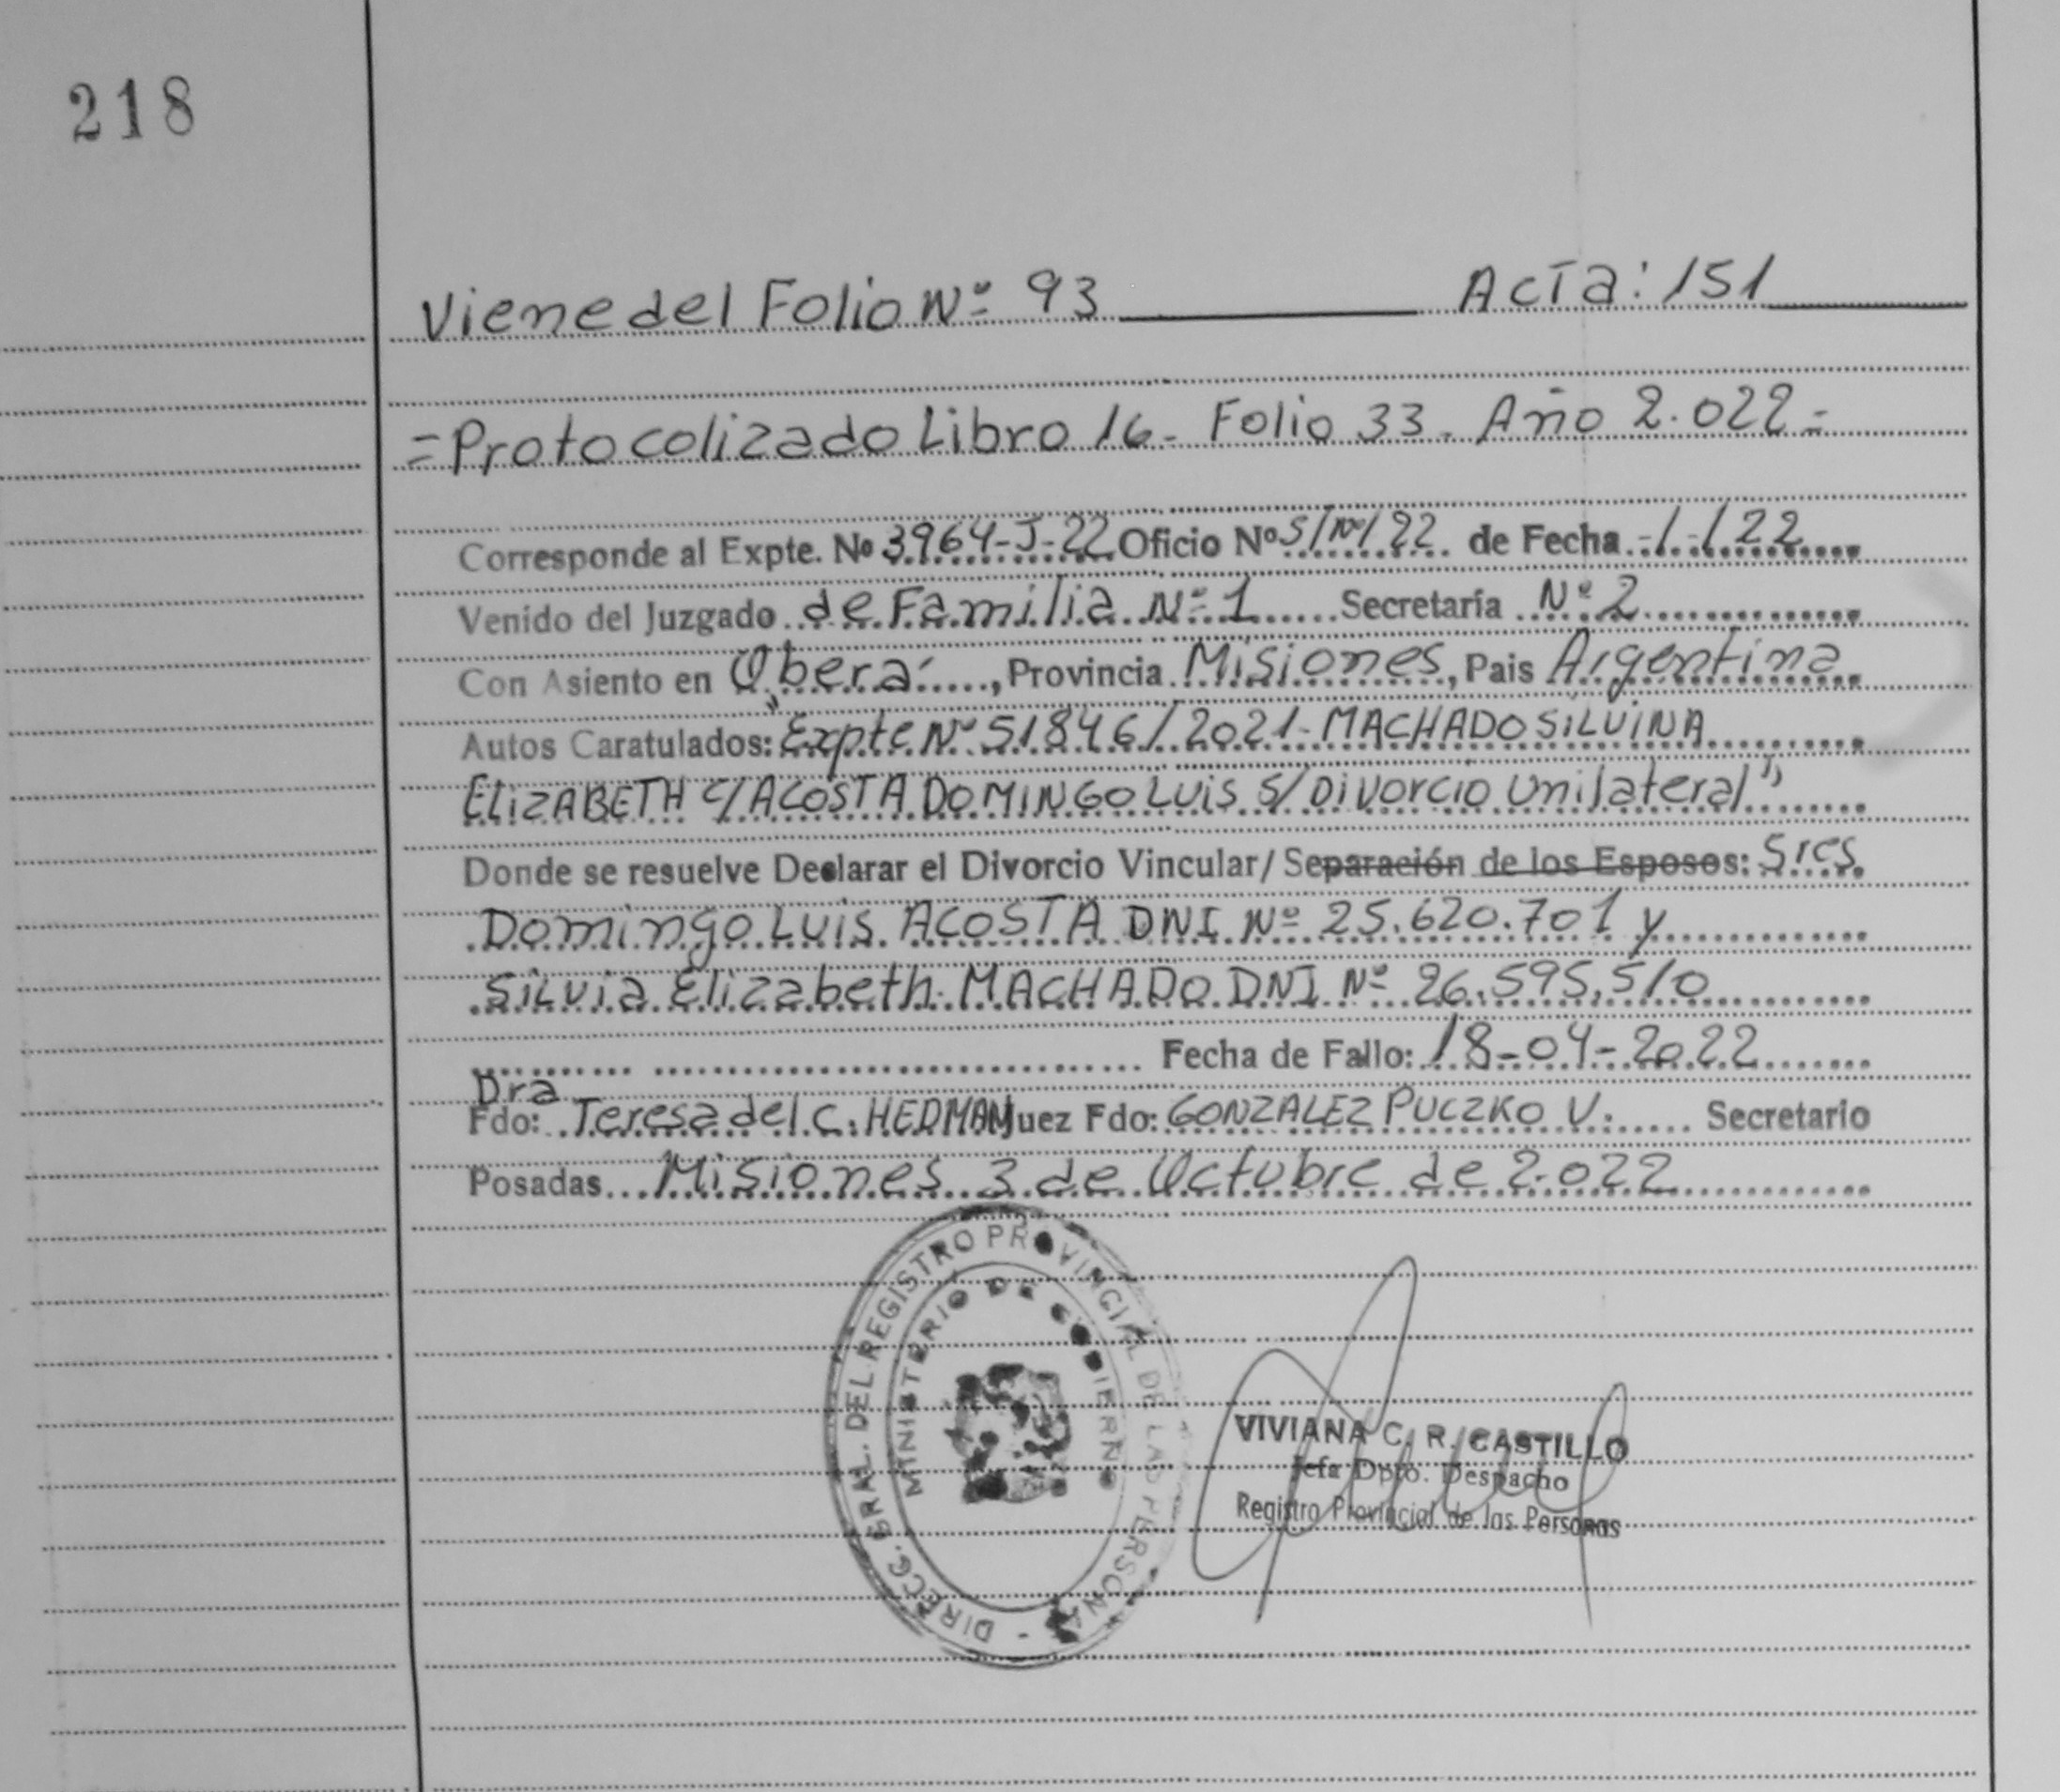 218
Viene del Folio Nº 93 Acta: 151
=Protocolizado Libro 16- Folio 33- Año 2.022=
Corresponde al Expte. Nº 3964-J-22 Oficio Nº S/Nº/22 de Fecha -/-/22
Venido del Juzgado de Familia Nº 1 Secretaría Nº 2
Con Asiento en Oberá, Provincia Misiones, Pais Argentina
Autos Caratulados: "Expte Nº 51846/2021- MACHADO SILVINA
ELIZABETH C/ ACOSTA DOMINGO LUIS S/ Divorcio Unilateral"
Donde se resuelve Declarar el Divorcio Vincular/ Separación de los Esposos: Sres
Domingo Luis ACOSTA DNI Nº 25.620.701 y
Silvia Elizabeth MACHADO DNI Nº 26.595.510
Fecha de Fallo: 18-04-2022
Dra
Fdo: Teresa del C. HEDMAN Juez Fdo: GONZALEZ PUCZKO V. Secretario
Posadas Misiones 3 de Octubre de 2.022
DIRECC. GRAL. DEL REGISTRO PROVINCIAL DE LAS PERSONAS -
MINISTERIO DE GOBIERNO
VIVIANA C. R. CASTILLO
Jefa Dpto. Despacho
Registro Provincial de las Personas